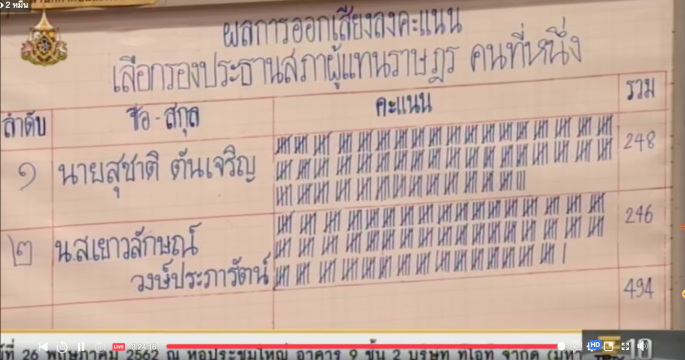 2 หมื่น
ผลการออกเสียงลงคะแนน
เลือกรองประธานสภาผู้แทนราษฎร คนที่หนึ่ง
ลำดับ ชื่อ - สกุล คะแนน รวม
๑ นายสุชาติ ตันเจริญ 248
๒ น.ส.เยาวลักษณ์ 246
วงษ์ประภารัตน์
494
LIVE HD
ที่ 26 พฤษภาคม 2562 ณ หอประชุมใหญ่ อาคาร 9 ชั้น 2 บริษัท ทีโอที จำกัด